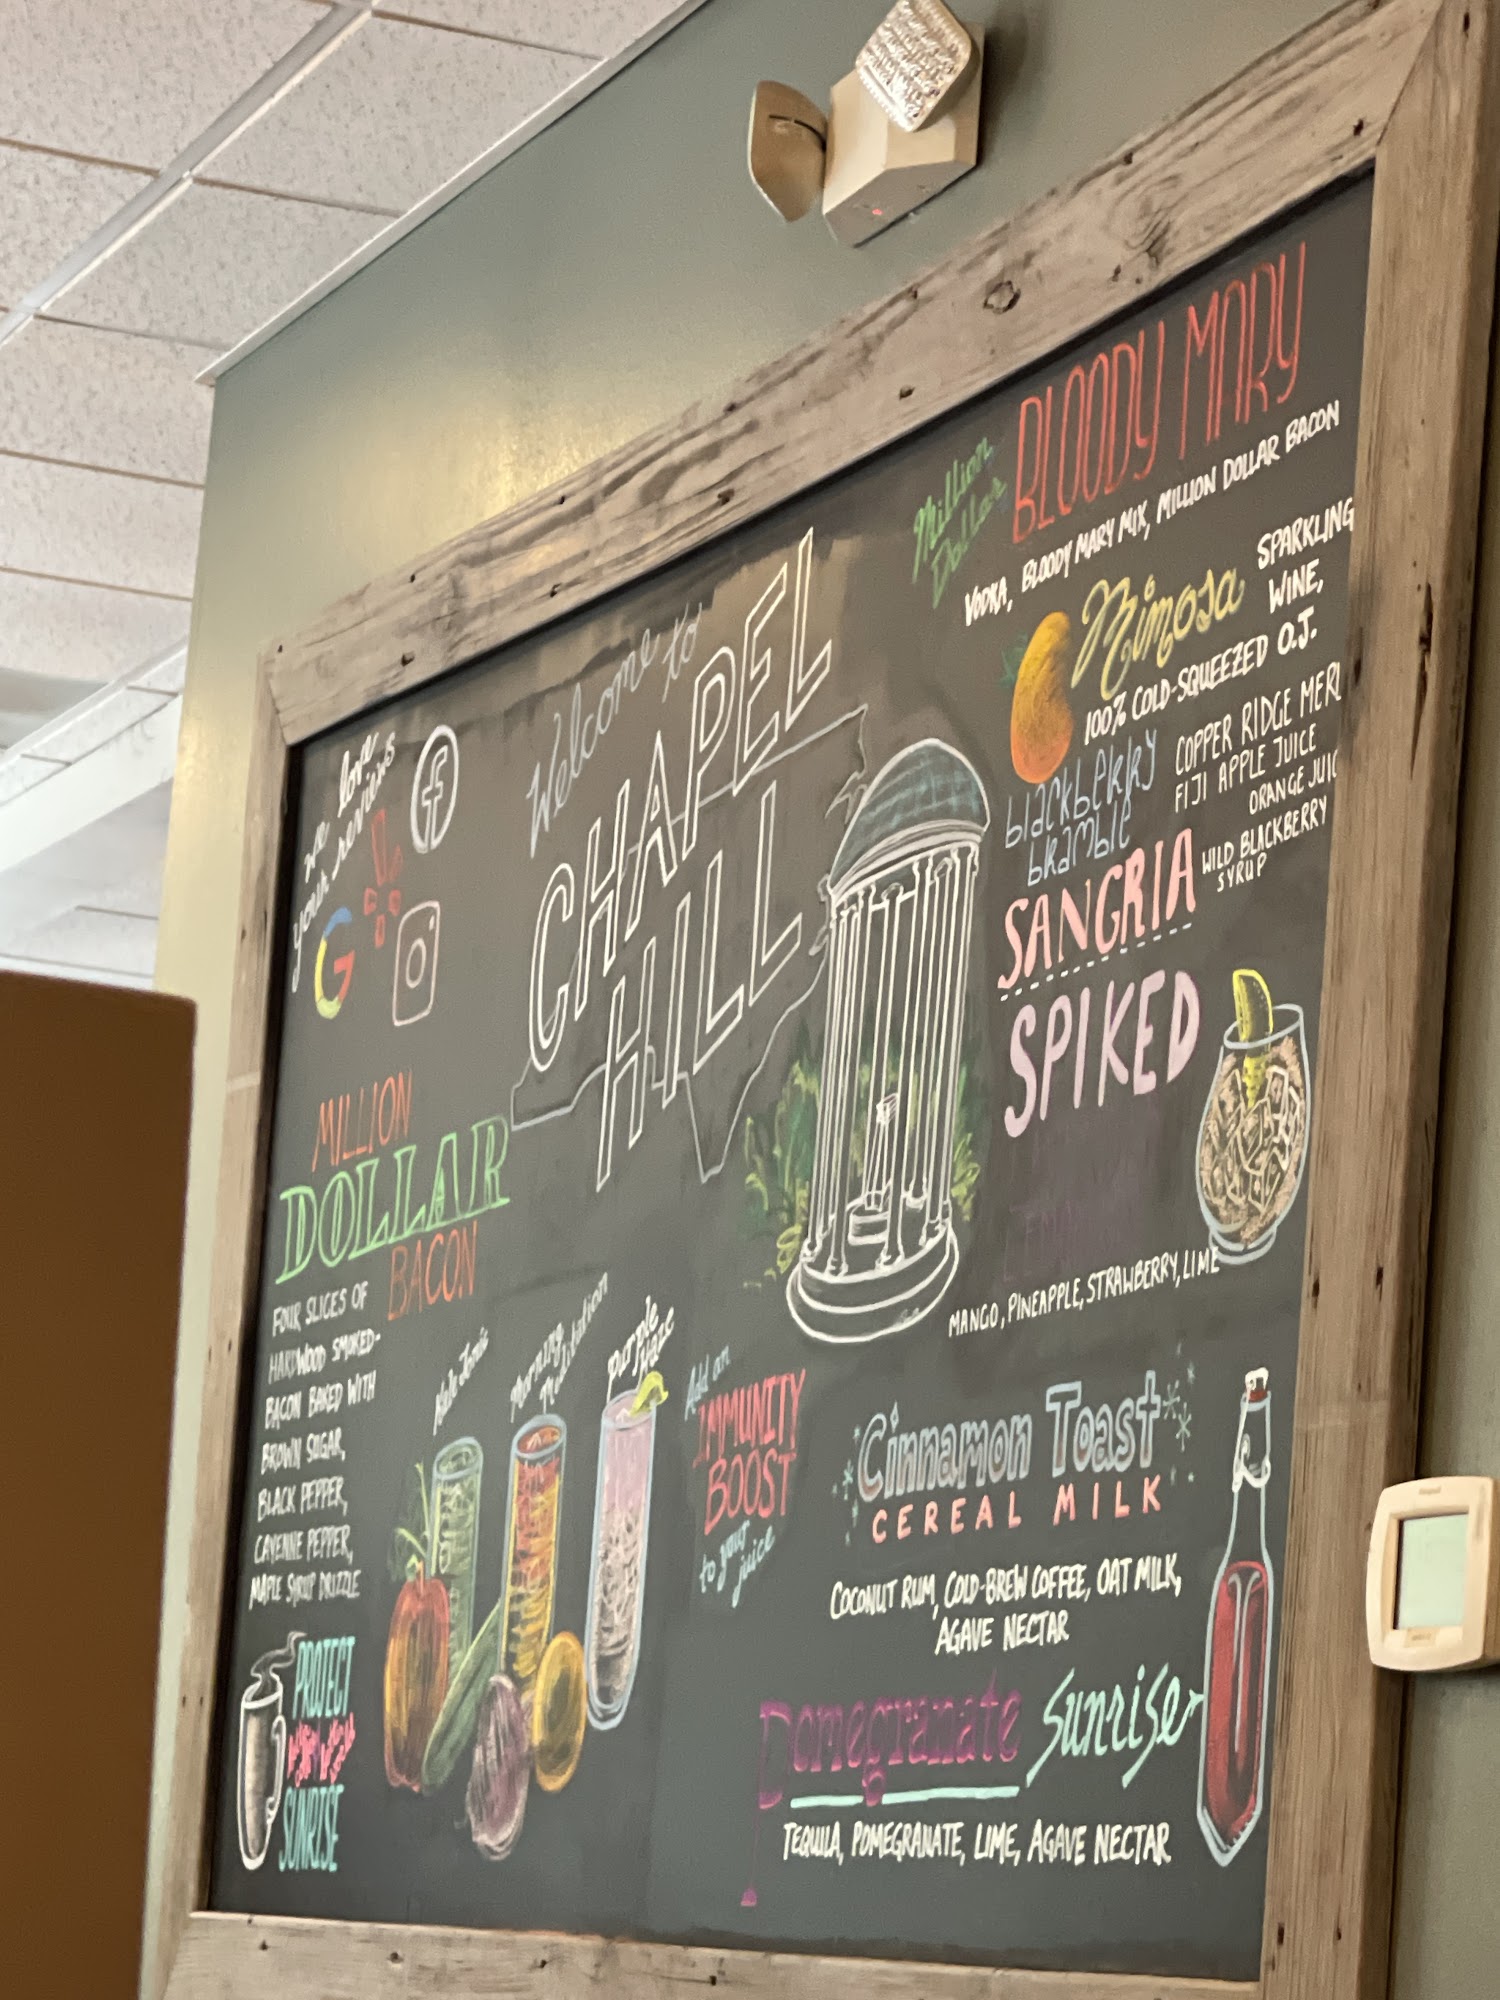 we love
your reviews
Welcome to
CHAPEL
HILL
MILLION
DOLLAR
BACON
FOUR SLICES OF
HARDWOOD SMOKED-
BACON BAKED WITH
BROWN SUGAR,
BLACK PEPPER,
CAYENNE PEPPER,
MAPLE SYRUP DRIZZLE
PROJECT
SUNRISE
Kale Tonic
Morning
Meditation
Purple
Haze
Add an
IMMUNITY
BOOST
to your
juice
Million
Dollar
BLOODY MARY
VODKA, BLOODY MARY MIX, MILLION DOLLAR BACON
Mimosa
SPARKLING
WINE,
100% COLD-SQUEEZED O.J.
blackberry
bramble
SANGRIA
COPPER RIDGE MERL
FIJI APPLE JUICE
ORANGE JUIC
WILD BLACKBERRY
SYRUP
SPIKED
MANGO, PINEAPPLE, STRAWBERRY, LIME
Cinnamon Toast
CEREAL MILK
COCONUT RUM, COLD-BREW COFFEE, OAT MILK,
AGAVE NECTAR
Pomegranate Sunrise
TEQUILA, POMEGRANATE, LIME, AGAVE NECTAR